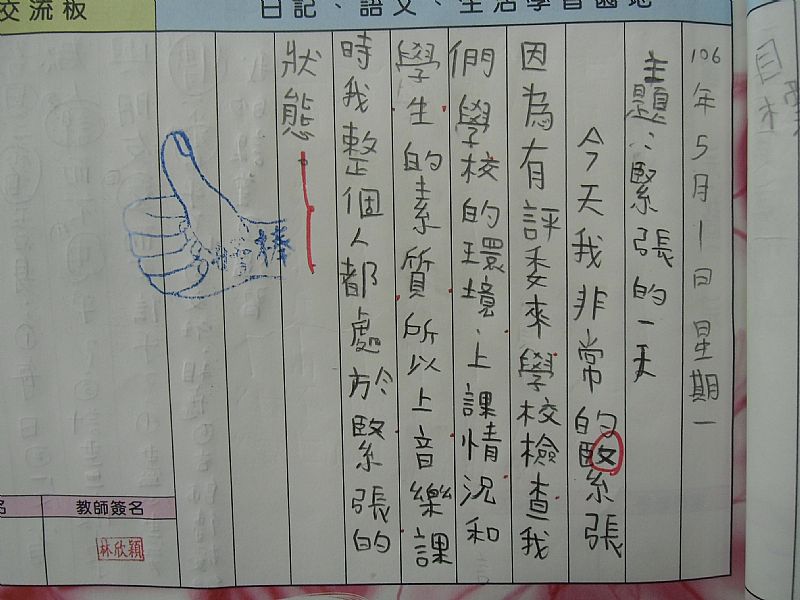 交流板
日記、語文、生活學習園地
106年5月1日星期一
主題：緊張的一天
今天我非常的緊張
因為有評委來學校檢查我
們學校的環境、上課情況和
學生的素質所以上音樂課
時我整個人都處於緊張的
狀態。
棒
教師簽名
名
林欣穎